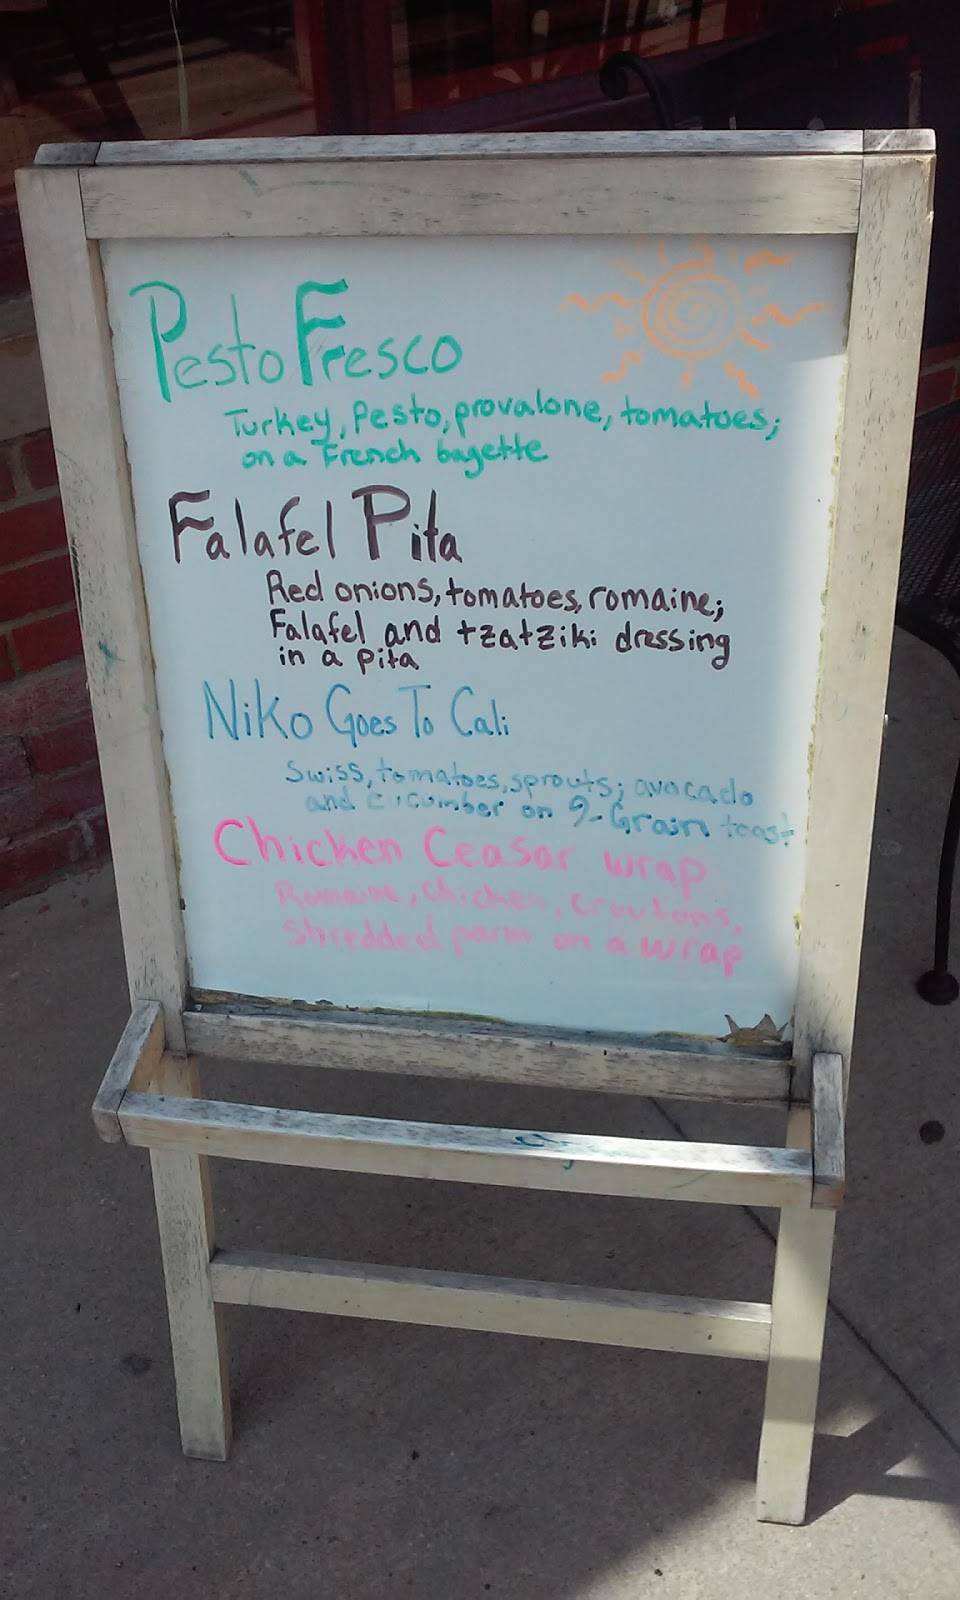 Pesto Fresco
Turkey, Pesto, provalone, tomatoes;
on a French bagette
Falafel Pita
Red onions, tomatoes, romaine;
Falafel and tzatziki dressing
in a pita
Niko Goes To Cali
Swiss, tomatoes, sprouts; avocado
and cucumber on 9-Grain toast
Chicken Ceasar wrap
Romaine, Chicken, Croutons,
Shredded parm on a wrap